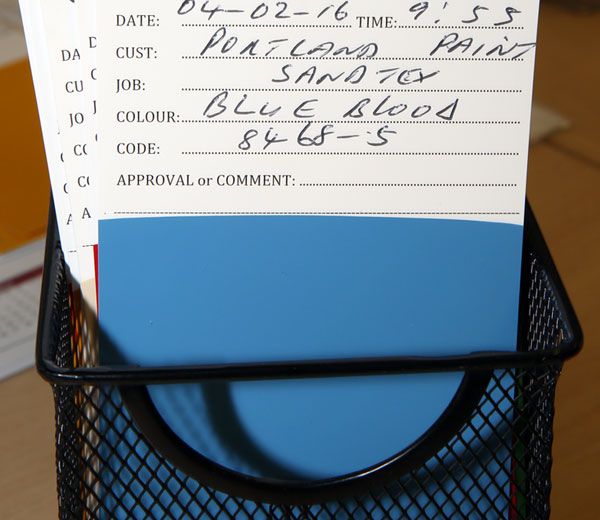 DATE: 04-02-16 TIME: 9:55
CUST: PORTLAND PAINT
JOB: SANDTEX
COLOUR: BLUE BLOOD
CODE: 8468-5
APPROVAL or COMMENT:
DA
CU
JO
CC
A